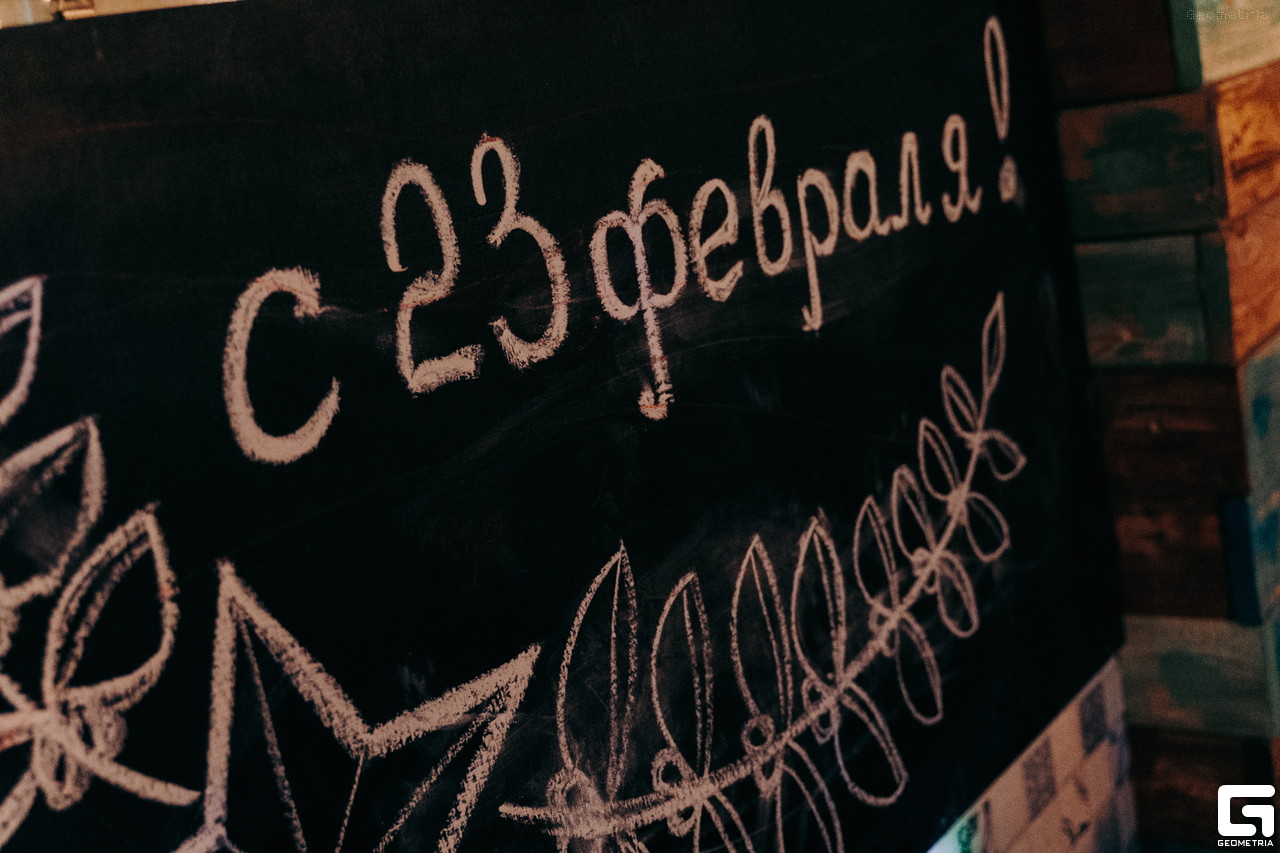 Geometria
с 23 февраля!
GEOMETRIA